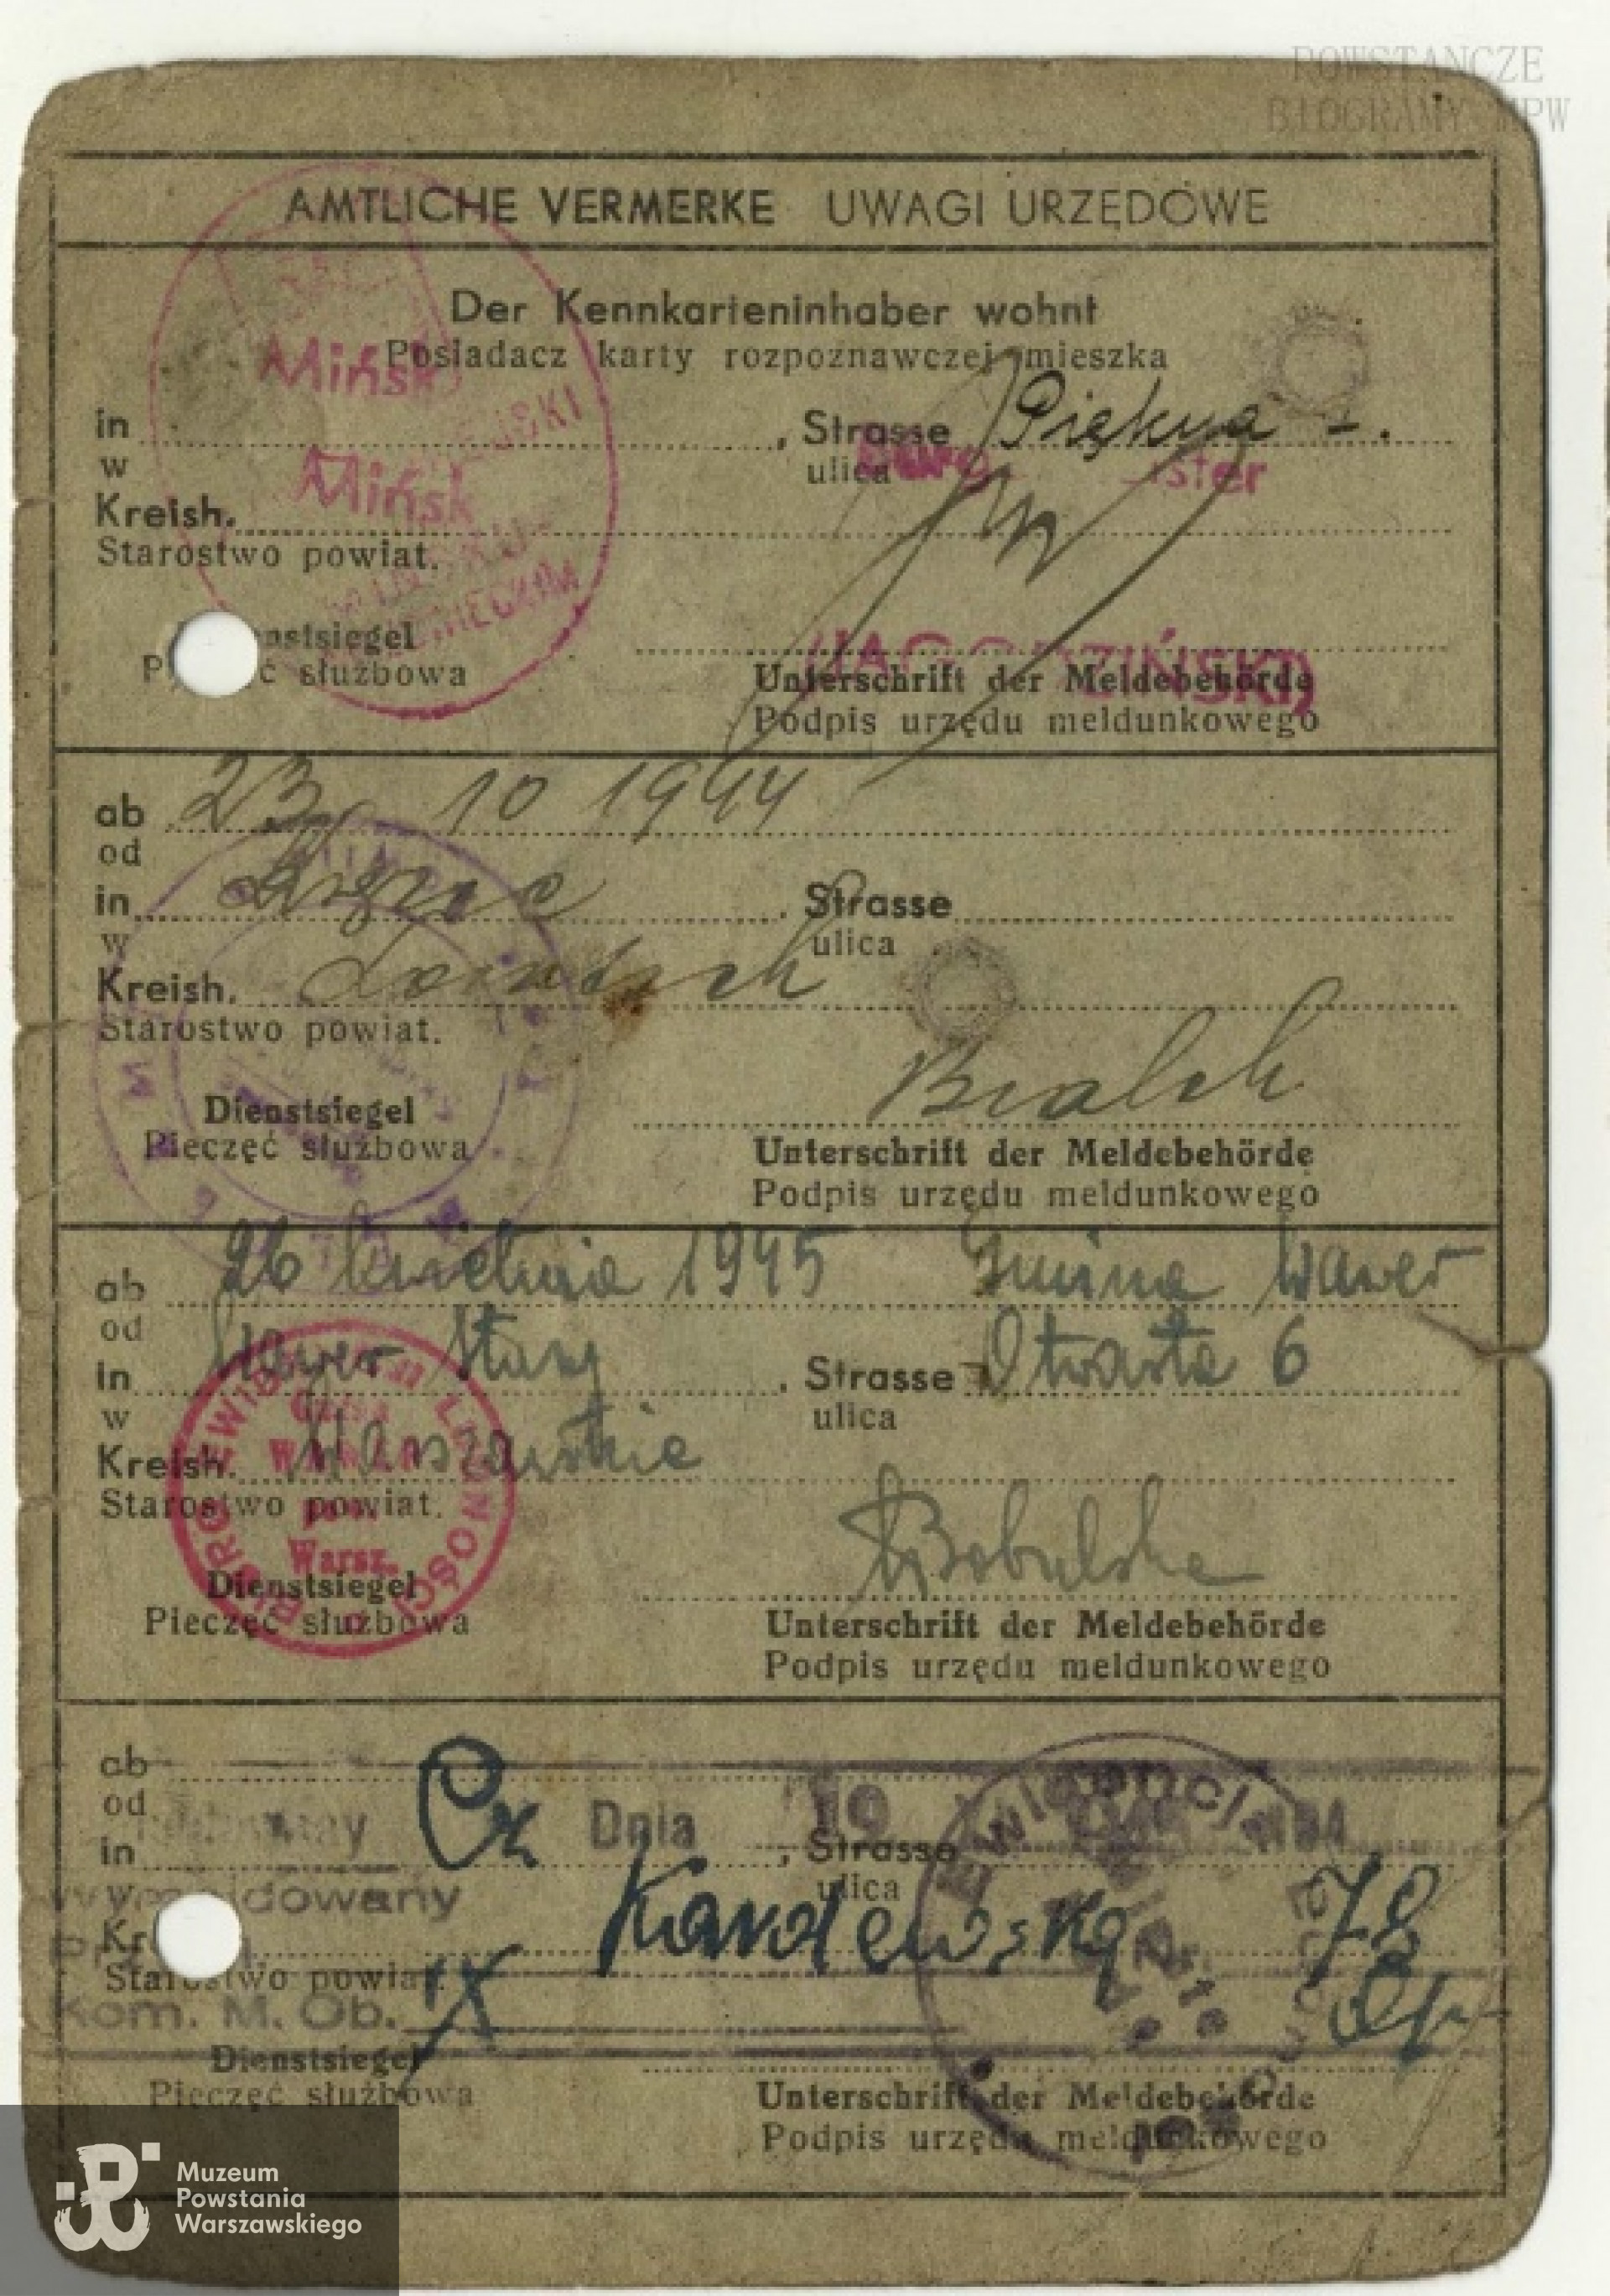 POWSTAŃCZE
BIOGRAMY MPW
AMTLICHE VERMERKE UWAGI URZĘDOWE
Der Kennkarteninhaber wohnt
Posiadacz karty rozpoznawczej mieszka
Mińsk
in , Strasse Piękna 1.
w ulica ister
Mińsk
Kreish.
Starostwo powiat.
Dienstsiegel (JAGODZIŃSKI)
Pieczęć służbowa Unterschrift der Meldebehörde
Podpis urzędu meldunkowego
ab 23 10 1944
od
in , Strasse
w ulica
Kreish. Lowitsch
Starostwo powiat.
Dienstsiegel
Pieczęć służbowa Unterschrift der Meldebehörde
Podpis urzędu meldunkowego
ab 26 kwietnia 1945 Gmina Wawer
od
in Wawer Stary , Strasse Otwarta 6
w ulica
Kreish. Warszawskie
Starostwo powiat.
BIURO EWIDENCJI LUDNOŚCI
Warsz.
Bobulska
Dienstsiegel
Pieczęć służbowa Unterschrift der Meldebehörde
Podpis urzędu meldunkowego
ab
od Dnia 19
in , Strasse
w ulica
Wymeldowany
Kawęczyńska 78
Starostwo powiat. IX
Kom. M. Ob.
Ewidencja
Dienstsiegel
Pieczęć służbowa Unterschrift der Meldebehörde
Podpis urzędu meldunkowego
Muzeum
Powstania
Warszawskiego